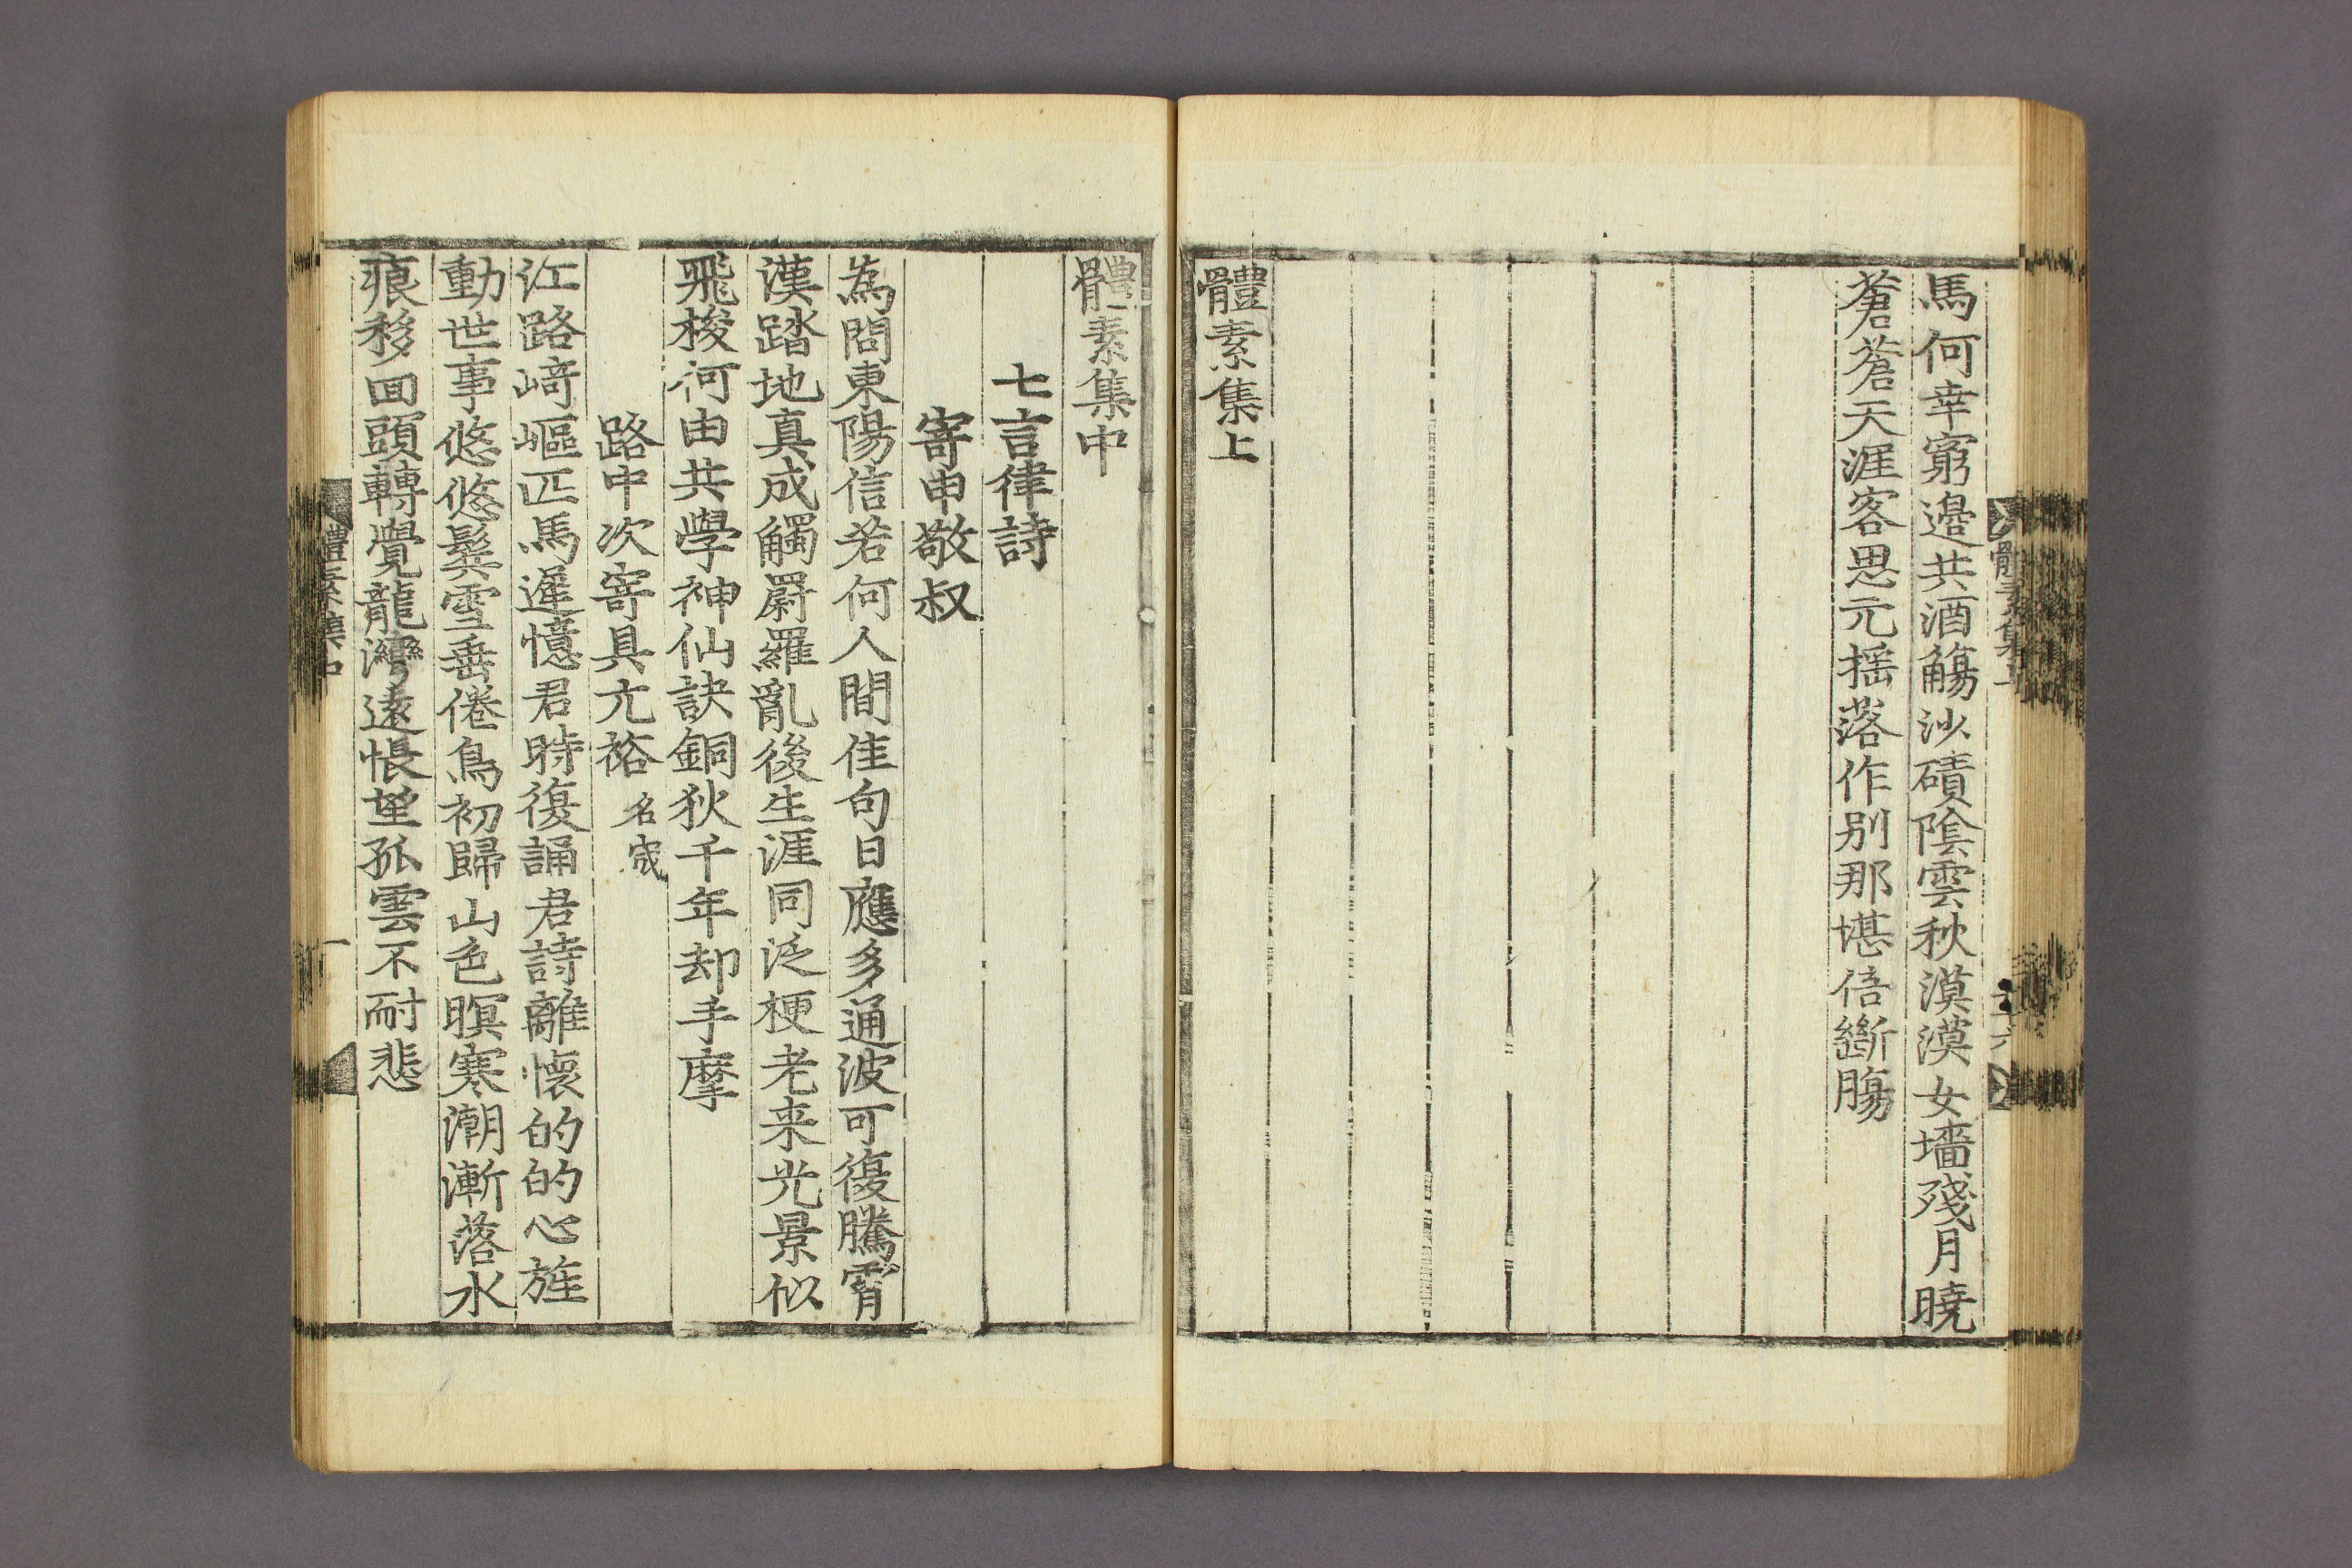 馬何幸窮邉共酒觴沙磧陰雲秋漠漠女墻殘月曉
蒼蒼天涯客思元揺落作别那堪倍斷膓
體素集上
體素集中
七言律詩
寄申敬叔
為問東陽信若何人間佳句日應多通波可復騰霄
漢踏地真成觸罻羅亂後生涯同泛梗老来光景似
飛梭何由共學神仙訣銅狄千年却手摩
路中次寄具亢裕名宬
江路﨑嶇匹馬遲憶君時復誦君詩離懷的的心旌
動世事悠悠鬂雪垂倦鳥初歸山色暝寒潮漸落水
痕移回頭轉覺龍灣遠悵望孤雲不耐悲
體素集中
一